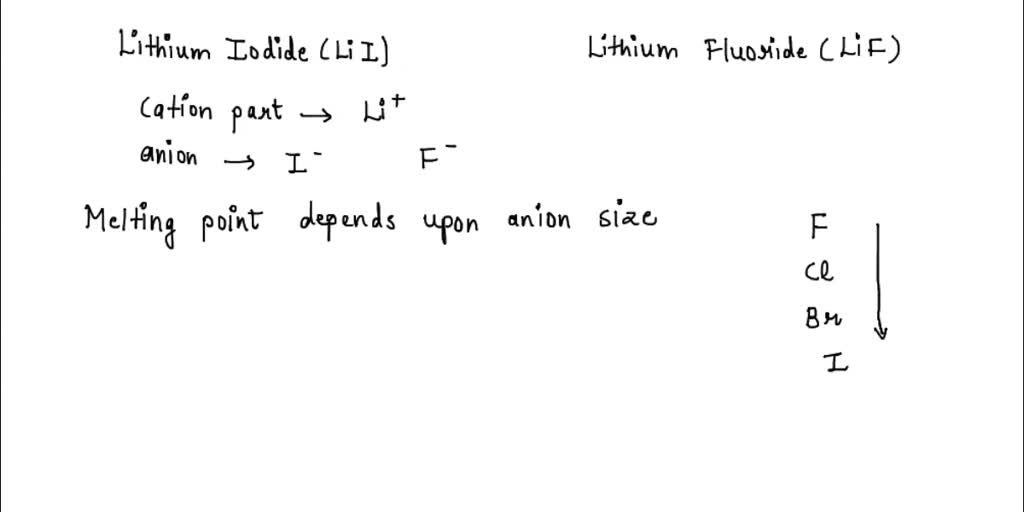 Lithium Iodide (LiI) Lithium Fluoride (LiF)
Cation part → Li⁺
anion → I⁻ F⁻
Melting point depends upon anion size
F
Cl
Br
I